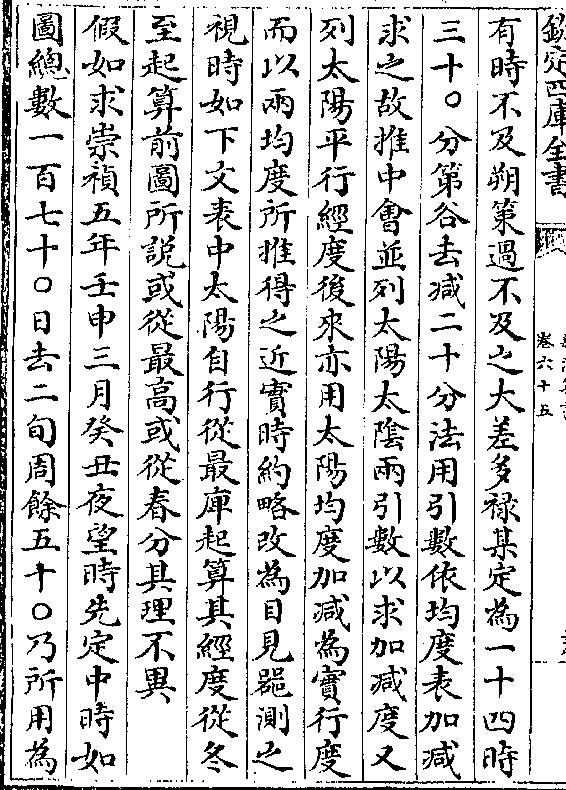 欽定四庫全書
卷六十五
有時不及朔第過不及之大差多禄某定為一十四時
三十〇分第谷去減二十分法用引數依均度表加減
求之故推中會並列太陽太陰兩引數以求加減度又
列太陽平行經度後來亦用太陽均度加減為實行度
而以兩均度所推得之近實時約略改為目見器測之
視時如下文表中太陽自行從最庳起算其經度從冬
至起算前圖所説或從最高或從春分其理不異
假如求崇禎五年壬申三月癸丑夜望時先定中時如
圖總數一百七十〇日去二旬周餘五十〇乃所用為